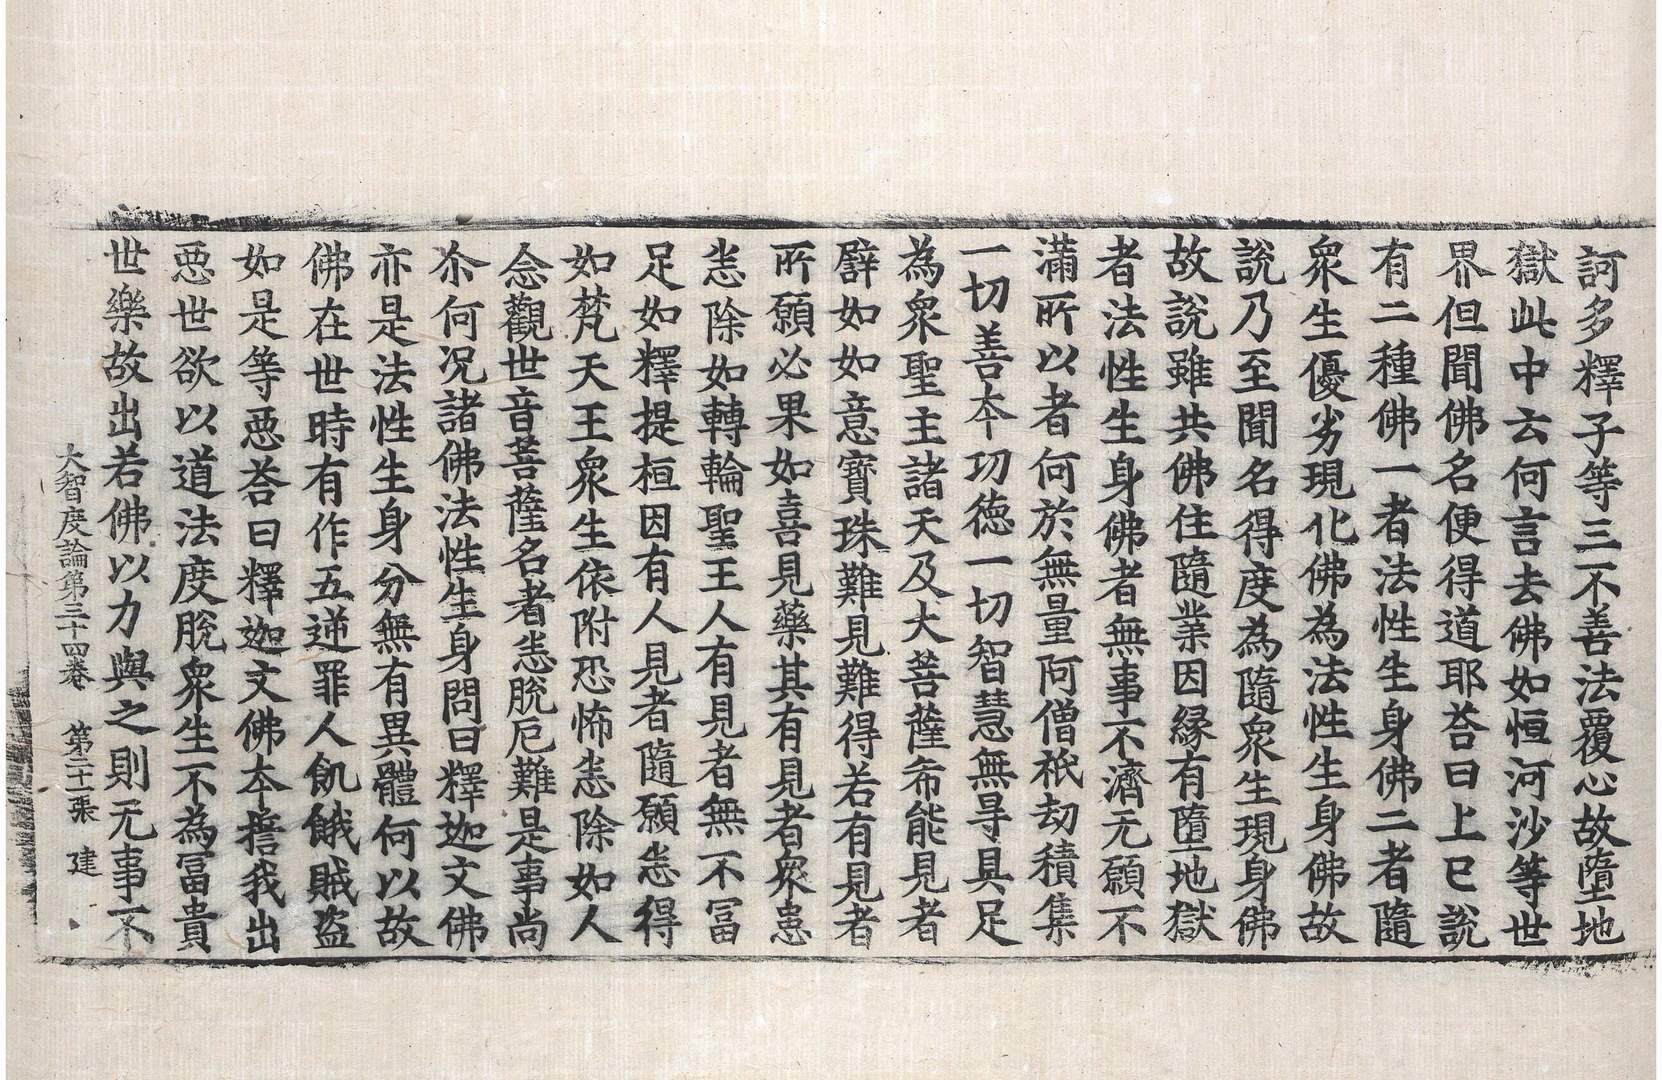 訶多釋子等三不善法覆心故墮地
獄此中云何言去佛如恒河沙等世
界但聞佛名便得道耶荅曰上已說
有二種佛一者法性生身佛二者隨
衆生優劣現化佛為法性生身佛故
說乃至聞名得度為隨衆生現身佛
故說雖共佛住隨業因緣有墮地獄
者法性生身佛者無事不濟无願不
滿所以者何於無量阿僧祇劫積集
一切善夲功徳一切智慧無㝵具足
為衆聖主諸天及大菩薩希能見者
譬如如意寶珠難見難得若有見者
所願必果如喜見藥其有見者衆患
悉除如轉輪聖王人有見者無不冨
足如釋提桓因有人見者隨願悉得
如梵天王衆生依附恐怖悉除如人
念觀世音菩薩名者悉脫厄難是事尚
尒何况諸佛法性生身問曰釋迦文佛
亦是法性生身分無有異體何以故
佛在世時有作五逆罪人飢餓賊盗
如是等惡荅曰釋迦文佛夲誓我出
惡世欲以道法度脫衆生不為冨貴
世樂故出若佛以力與之則无事不
大智度論第三十四卷 第二十一張 建